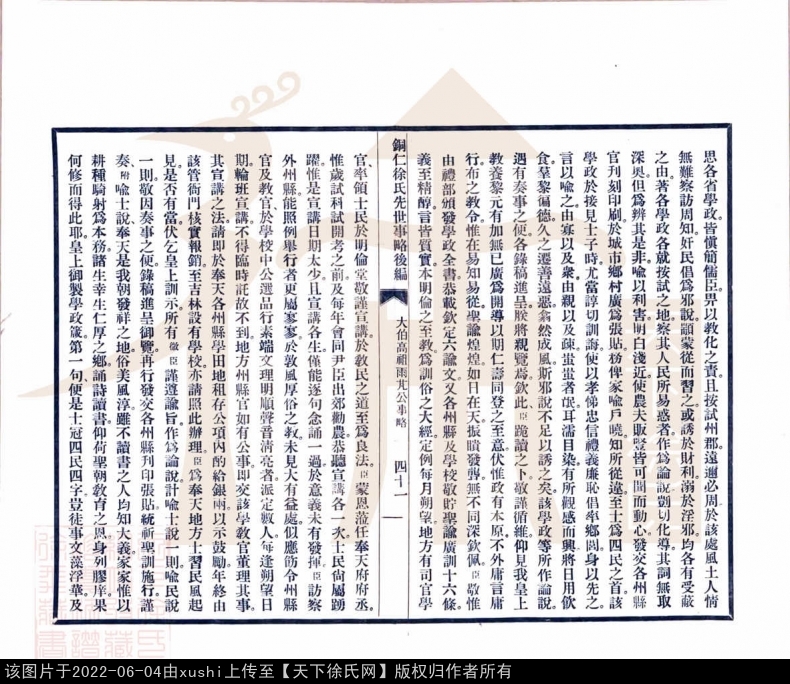 思各省學政皆愼簡儒臣畀以敎化之責且按試州郡遠邇必周於該處風土人情
無難察訪周知奸民倡爲邪說顓蒙從而習之或誘於財利溺於淫邪均各有受蔽
之由著各學政各就按試之地察其人民所易惑者作爲論說剴切化導其詞無取
深奥但爲辨其是非喩以利害明白淺近使農夫販豎皆可聞而動心發交各州縣
官刊刻印刷於城市鄉村廣爲張貼務俾家喩戶曉知所從違至士爲四民之首該
學政於接見士子時尤當諄切訓誨使以孝悌忠信禮義廉恥倡率鄉閭身以先之
言以喩之由寡以及衆由親以及疎蚩蚩者氓耳濡目染有所觀感而興將日用飮
食羣黎徧德久之遷善遠惡翕然成風斯邪說不足以誘之矣該學政等所作論說
遇有奏事之便各錄稿進呈朕將親覽焉欽此臣跪讀之下敬謹循維仰見我皇上
敎養黎元有加無已廣爲開導以期仁壽同登之至意伏惟政有本原不外庸言庸
行布之敎令惟在易知易從聖諭煌煌如日在天振聵發聾無不同深欽佩臣敬惟
由禮部頒發學政全書恭載欽定六諭文又各州縣及學校敬貯聖諭廣訓十六條
義至精醇言皆質實本明倫之至敎爲訓俗之大經定例每月朔望地方有司官學
銅仁徐氏先世事略後編
大伯高祖雨芃公事略
四十一
官率領士民於明倫堂敬謹宣講於敎民之道至爲良法臣蒙恩蒞任奉天府府丞
惟歲試科試開考之前及每年會同尹臣出郊勸農恭聽宣講各一次士民尙屬踴
躍惟是宣講日期太少且宣講各生僅能逐句念誦一過於意義未有發揮臣訪察
外州縣能照例舉行者更屬寥寥於敦風厚俗之敎未見大有益處似應飭令州縣
官及敎官於學校中公選品行素端文理明順聲音淸亮者派定數人每逢朔望日
期輪班宣講不得臨時託故不到地方州縣官如有公事卽交該學敎官董理其事
其宣講之法請卽於奉天各州縣學田地租存公項內酌給銀兩以示鼓勵年終由
該管衙門核實報銷至吉林設有學校亦請照此辦理臣爲奉天地方士習民風起
見是否有當伏乞皇上訓示所有微臣謹遵諭旨作爲論說計喩士說一則喩民說
一則敬因奏事之便錄稿進呈御覽再行發交各州縣刊印張貼統祈聖訓施行謹
奏附喩士說奉天是我朝發祥之地俗美風淳雖不讀書之人均知大義家家惟以
耕種騎射爲本務諸生幸生仁厚之鄉誦詩讀書仰荷聖朝敎育之恩身列膠庠果
何修而得此耶皇上御製學政箴第一句便是士冠四民四字豈徒事文藻浮華及
该图片于2022-06-04由xushi上传至【天下徐氏网】版权归作者所有